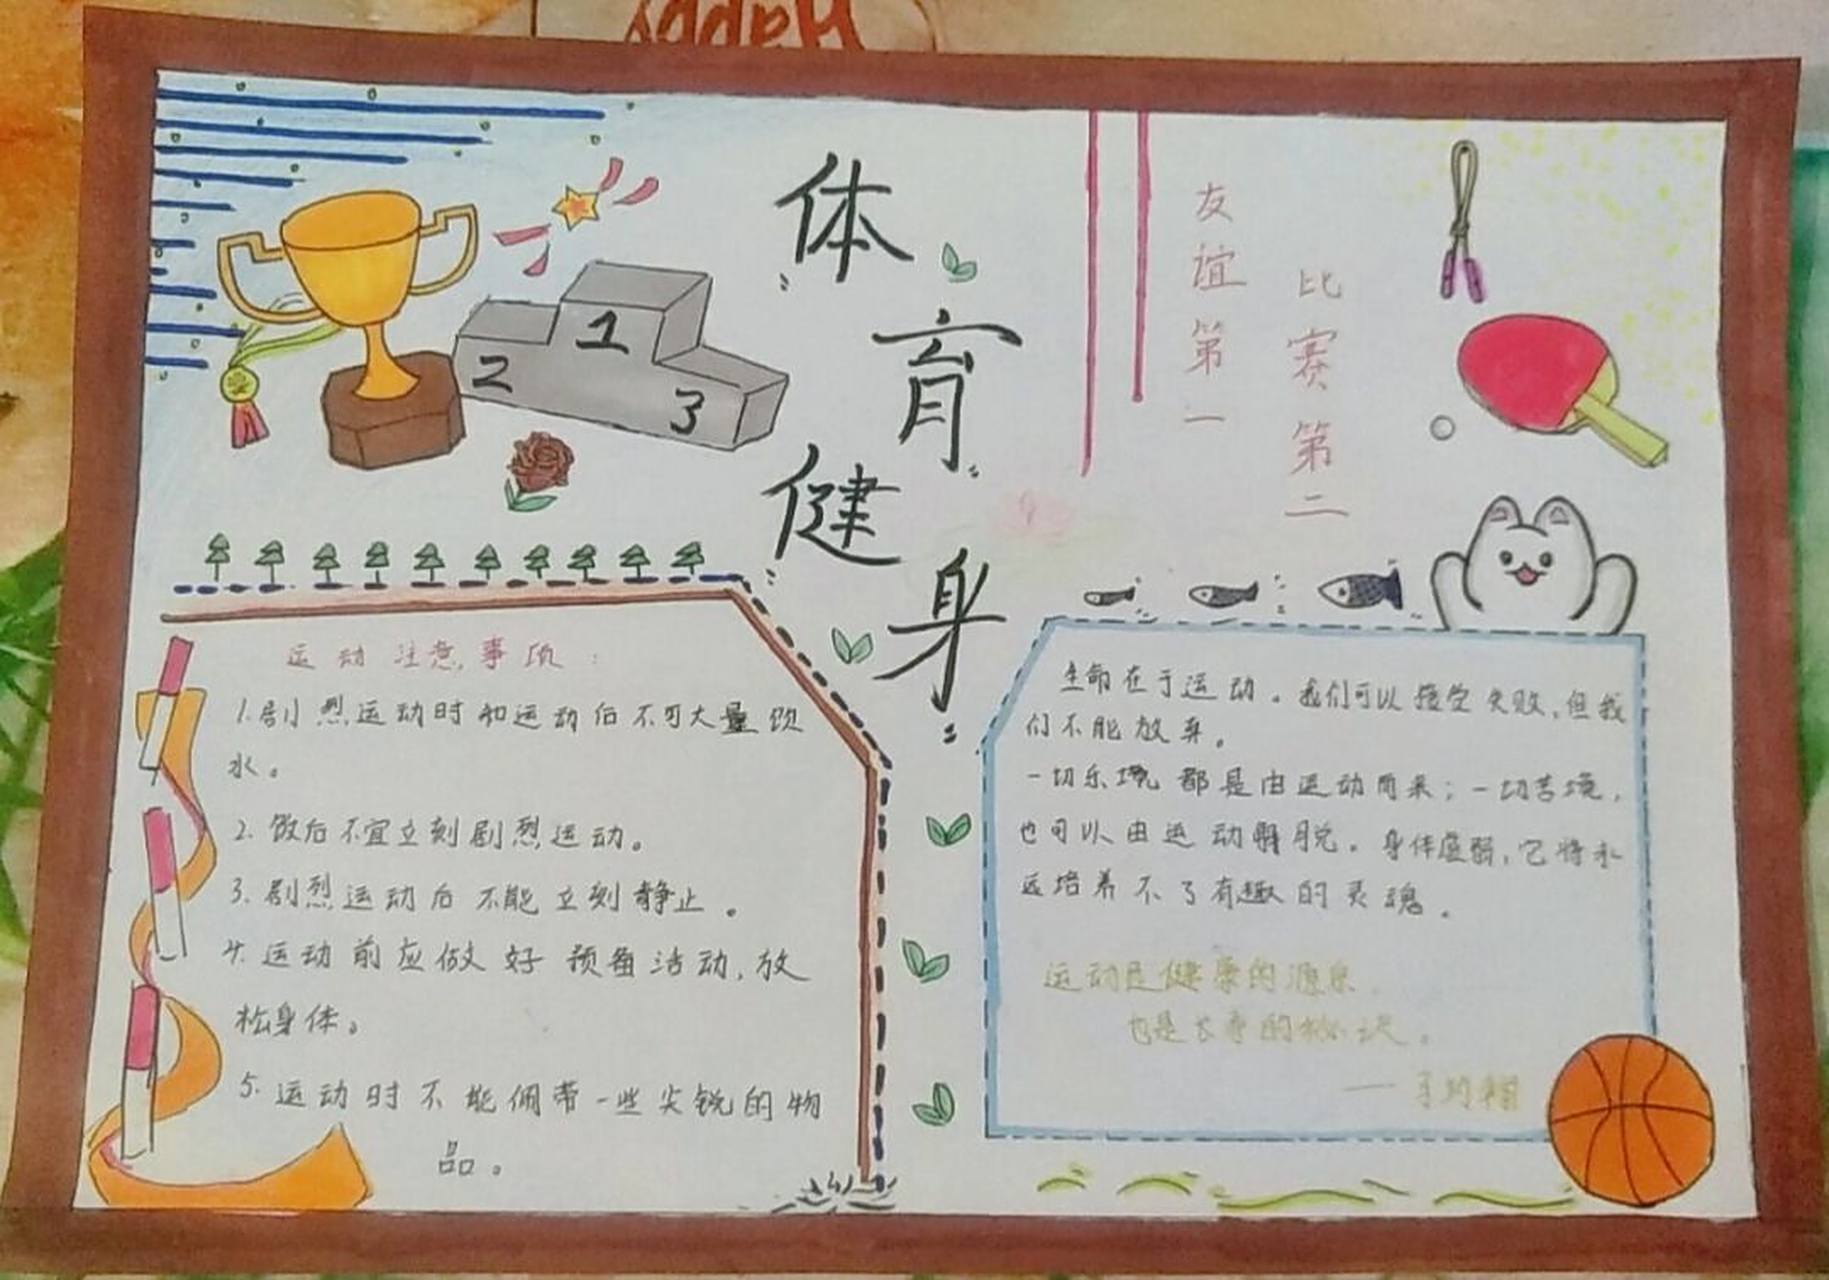 Happy
体育健身
友谊第一
比赛第二
1
2
3
运动注意事项:
1.剧烈运动时和运动后不可大量饮
水。
2.饭后不宜立刻剧烈运动。
3.剧烈运动后不能立刻静止。
4.运动前应做好预备活动,放
松身体。
5.运动时不能佩带一些尖锐的物
品。
生命在于运动。我们可以接受失败,但我
们不能放弃。
一切乐境都是由运动而来;一切苦境,
也可以由运动解脱。身体虚弱,它将永
远培养不了有趣的灵魂。
运动是健康的源泉
也是长寿的秘诀。